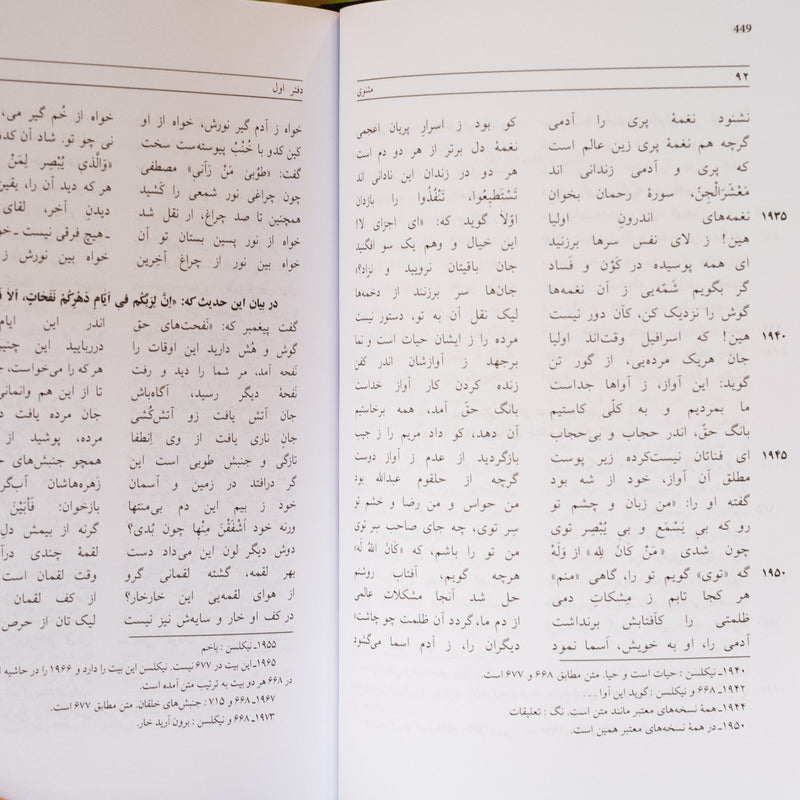 449
۹۲ مثنوی
نشنود نغمهٔ پری را آدمی کو بود ز اسرارِ پریان اعجمی
گرچه هم نغمهٔ پری زین عالم است نغمهٔ دل برتر از هر دو دم است
که پری و آدمی زندانی اند هر دو در زندان این نادانی اند
مَعْشَرَالْجِنّ، سورهٔ رحمان بخوان تَسْتَطیعُوا، تَنْفُذُوا را بازدان
۱۹۳۵ نغمه‌های اندرونِ اولیا اوّلاً گوید که: «ای اجزای لا!
هین! ز لای نفس سرها برزنید این خیال و وهم یک سو افگنید
ای همه پوسیده در کَوْن و فَساد جان باقیتان نرویید و نزاد؟»
گر بگویم شَمّه‌یی ز آن نغمه‌ها جان‌ها سر برزنند از دخمه‌ها
گوش را نزدیک کن، کآن دور نیست لیک نقل آن به تو، دستور نیست
۱۹۴۰ هین! که اسرافیل وقت‌اند اولیا مرده را ز ایشان حیات است و نما
جان هریک مرده‌یی، از گور تن برجهد ز آوازشان اندر کفن
گوید: این آواز، ز آواها جداست زنده کردن کار آواز خداست
ما بمردیم و به کلّی کاستیم بانگ حقّ آمد، همه برخاستیم
بانگ حقّ، اندر حجاب و بی‌حجاب آن دهد، کو داد مریم را ز جیب
۱۹۴۵ ای فناتان نیست‌کرده زیر پوست بازگردید از عدم ز آواز دوست
مطلق آن آواز، خود از شه بود گرچه از حلقوم عبدالله بود
گفته او را: «من زبان و چشم تو من حواس و من رضا و خشم تو
رو که بی یَسْمَع و بی یُبْصِر توی سِر توی، چه جای صاحب سِر توی
چون شدی «مَنْ کانَ لِلهِ» از وَلَهْ من تو را باشم، که «کانَ اللهُ لَه»
۱۹۵۰ گه «توی» گویم تو را، گاهی «منم» هرچه گویم، آفتاب روشنم
هر کجا تابم ز مِشکاتِ دمی حل شد آنجا مشکلات عالمی
ظلمتی را کآفتابش برنداشت از دم ما، گردد آن ظلمت چو چاشت»
آدمی را، او به خویش، اَسما نمود دیگران را، ز آدم اسما می‌گشود
۱۹۴۰ـ نیکلسن: حیات است و حیا. متن مطابق ۶۶۸ و ۶۷۷ است.
۱۹۴۲ـ ۶۶۸ و نیکلسن: گوید این آوا . . .
۱۹۴۴ـ همهٔ نسخه‌های معتبر مانند متن است. نگ : تعلیقات
۱۹۵۰ـ در همهٔ نسخه‌های معتبر همین است.
دفتر اول
خواه ز آدم گیر نورش، خواه از او خواه از خُم گیر می،
کین کدو با خُنْبْ پیوسته‌ست سخت نی چو تو. شاد آن
گفت: «طُوبیٰ مَنْ رَآنی» مصطفی «وَالَّذی یُبْصِر لِمَنْ
چون چراغی نور شمعی را کَشید هر که دید آن را، یقین
همچنین تا صد چراغ، ار نقل شد دیدنِ آخر، لقای
خواه از نور پسین بستان تو آن ـ هیچ فرقی نیست ـ
خواه بین نور از چراغِ آخِرین خواه بین نورش ز
در بیان این حدیث که: «اِنَّ لِرَبِّکُم فی اَیّامِ دَهْرِکُمْ نَفَحَاتٍ، اَلا
گفت پیغمبر که: «نَفحت‌های حق اندر این ایام
گوش و هُش دارید این اوقات را درربایید این
نَفحه آمد، مر شما را دید و رفت هر که را می‌خواست،
نَفحهٔ دیگر رسید، آگاه‌باش تا از این هم وانمانی
جان آتش یافت زو آتش‌کُشی جان مرده یافت
جانِ ناری یافت از وی اِنطفا مرده، پوشید از
تازگی و جنبش طوبی است این همچو جنبش‌های
گر درافتد در زمین و آسمان زَهره‌هاشان آب
خود ز بیم این دم بی‌منتها بازخوان: فَاَبَیْنَ
ورنه خود اَشْفَقْنَ مِنْها چون بُدی؟ گرنه از بیمش
دوش دیگر لون این می‌داد دست لقمهٔ چندی
بهر لقمه، گشته لقمانی گرو وقت لقمان است
از هوای لقمه‌یی این خارخار؟ از کف لقمان
در کف او خار و سایه‌ش نیز نیست لیک تان از حرص
۱۹۵۵ـ نیکلسن : باخم
۱۹۶۵ـ این بیت در ۶۷۷ نیست. نیکلسن این بیت را دارد و ۱۹۶۶ را در حاشیه
در ۶۶۸ هر دو بیت به ترتیب متن آمده است.
۱۹۶۷ـ ۶۶۸ و ۷۱۵ : جنبش‌های خلقان. متن مطابق ۶۷۷ است.
۱۹۷۳ـ ۶۶۸ و نیکلسن : برون آرید خار.